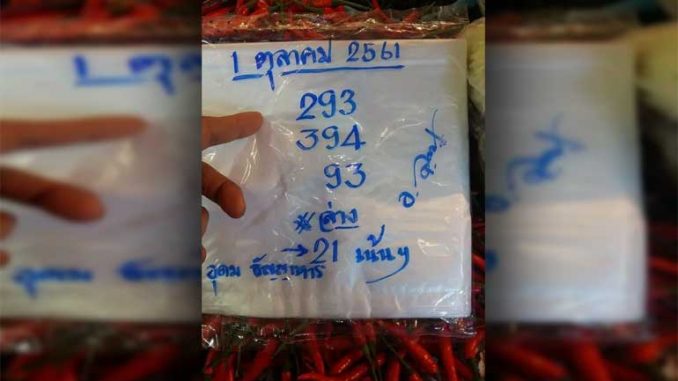 1 ตุลาคม 2561
293
394
93
* ล่าง
→ 21 เน้นๆ
อุดม ธัญญาหาร